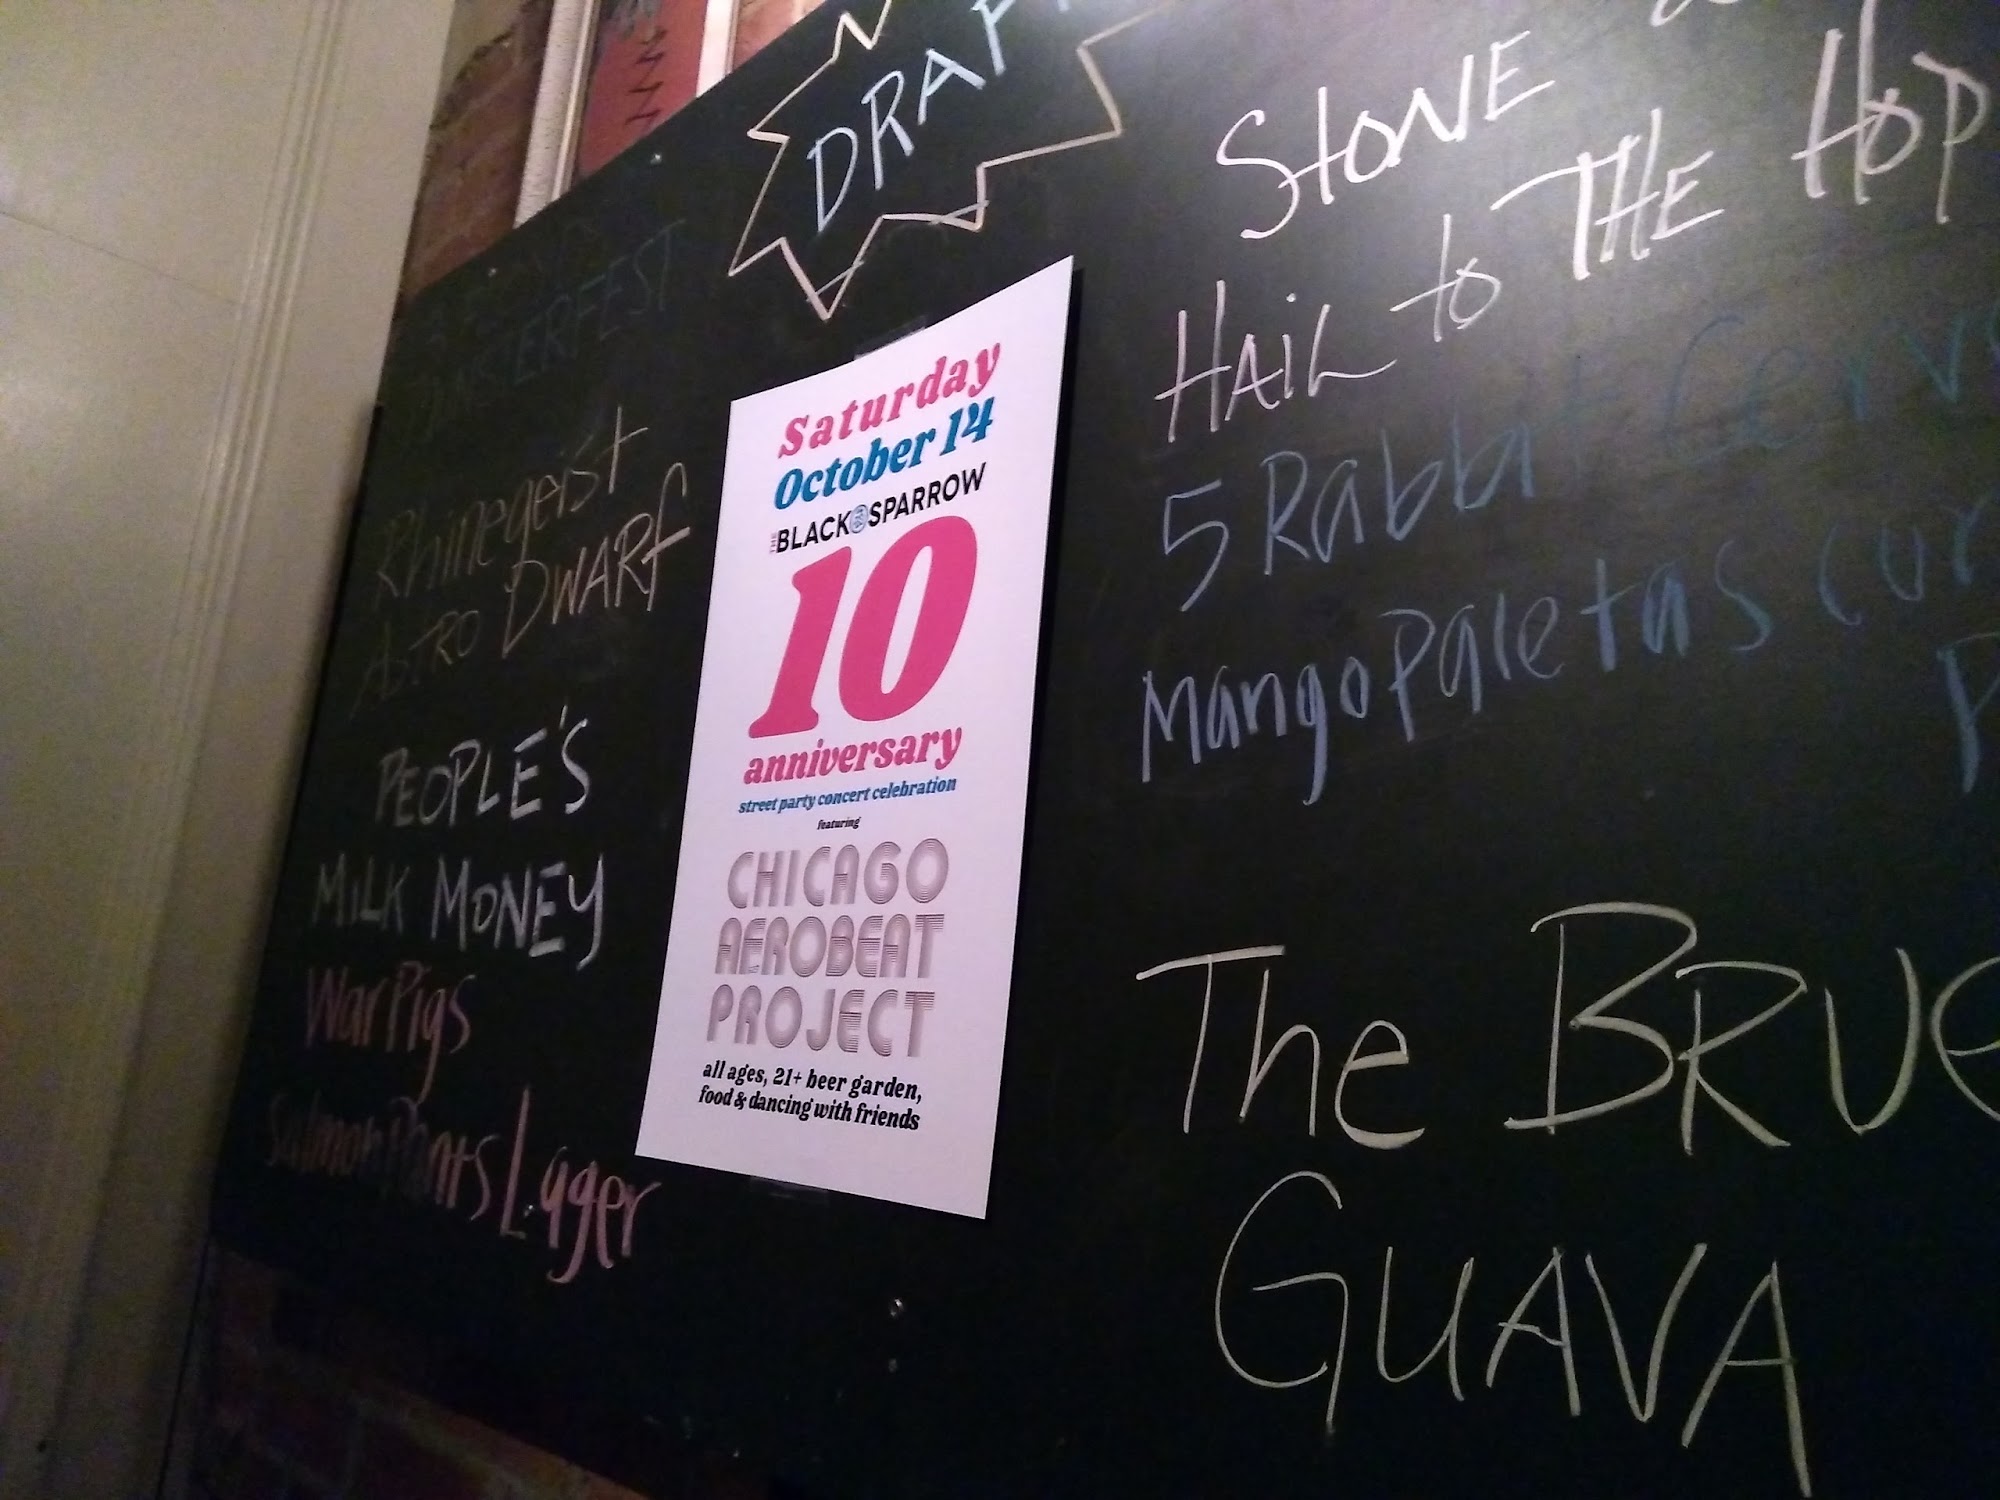 DRAF
STONE
HAIL to THE HOP
5 Rabbit Cerv
Mango Paletas Con
The BRUE
GUAVA
Rhinegeist
ASTRO DWARF
PEOPLE'S
MILK MONEY
War Pigs
Salmon Pants Lager
Saturday
October 14
THE BLACK SPARROW
10
anniversary
street party concert celebration
featuring
CHICAGO
AFROBEAT
PROJECT
all ages, 21+ beer garden,
food & dancing with friends